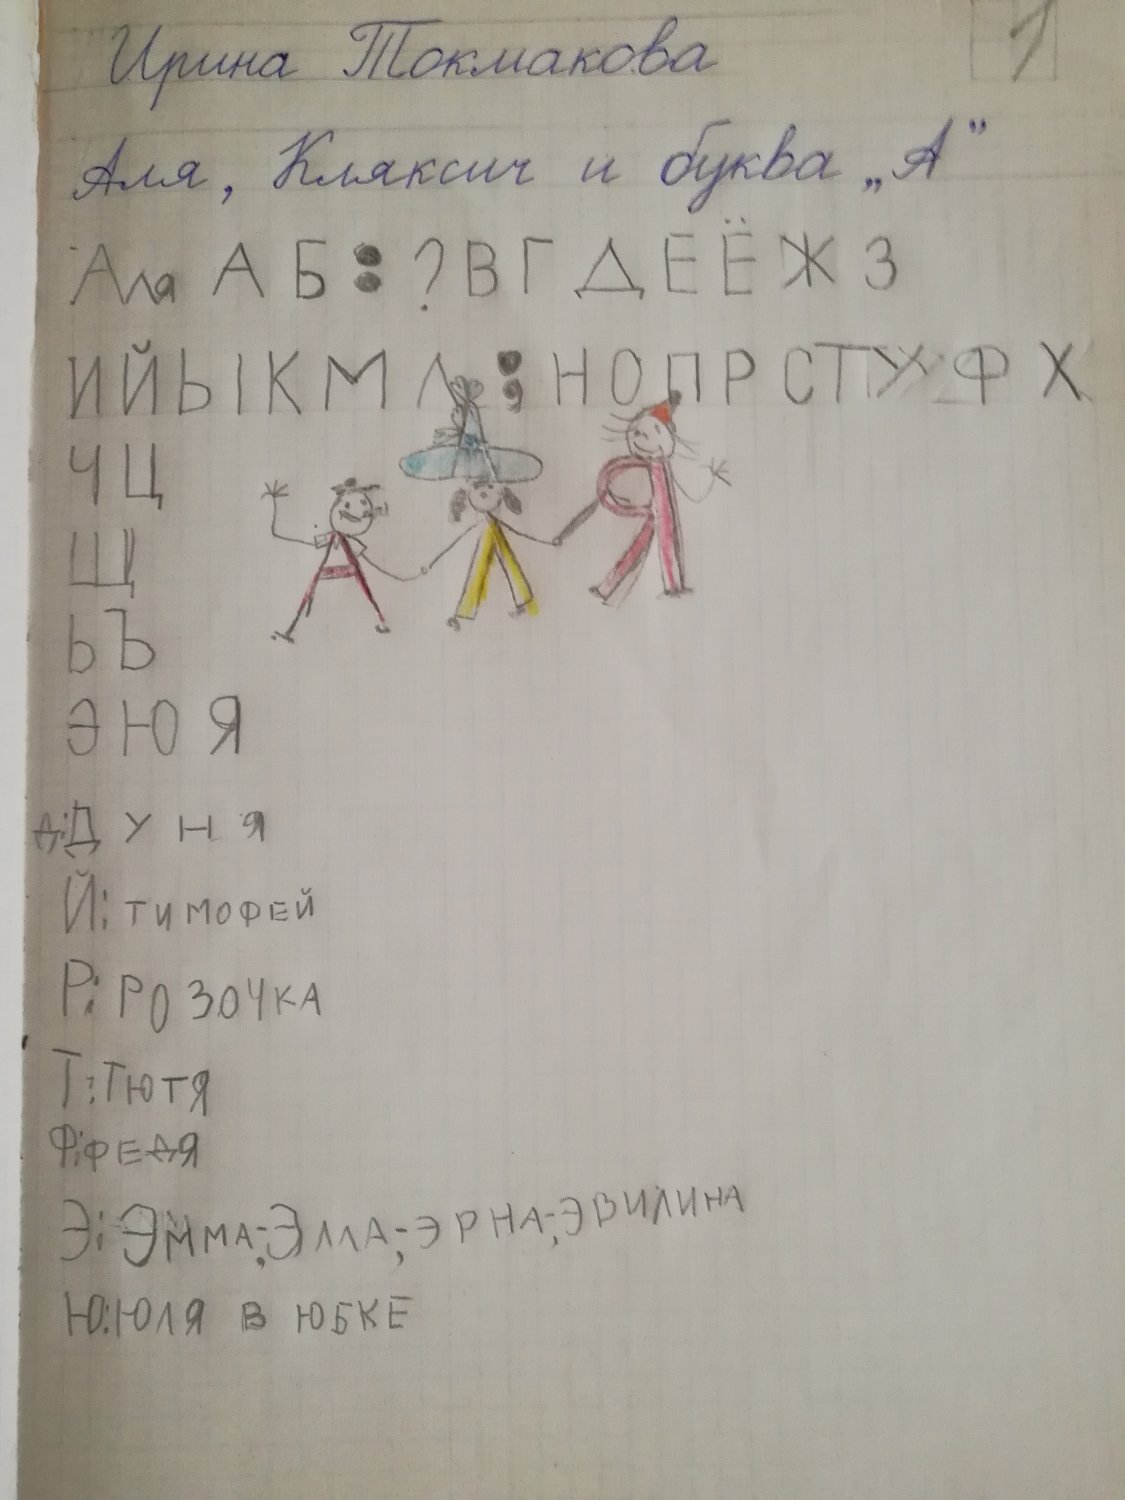 Ирина Токмакова
1
Аля, Кляксич и буква „А”
Аля А Б : ? В Г Д Е Ё Ж З
И Й Ы К М Л ; Н О П Р С Т У Ф Х
Ч Ц
Щ
Ь Ъ
Э Ю Я
Д: Дуня
Й: ТИМОФЕЙ
Р: РОЗОЧКА
Т: ТЮТЯ
Ф: ФЕДЯ
Э: ЭММА; ЭЛЛА; ЭРНА; ЭВИЛИНА
Ю: ЮЛЯ В ЮБКЕ